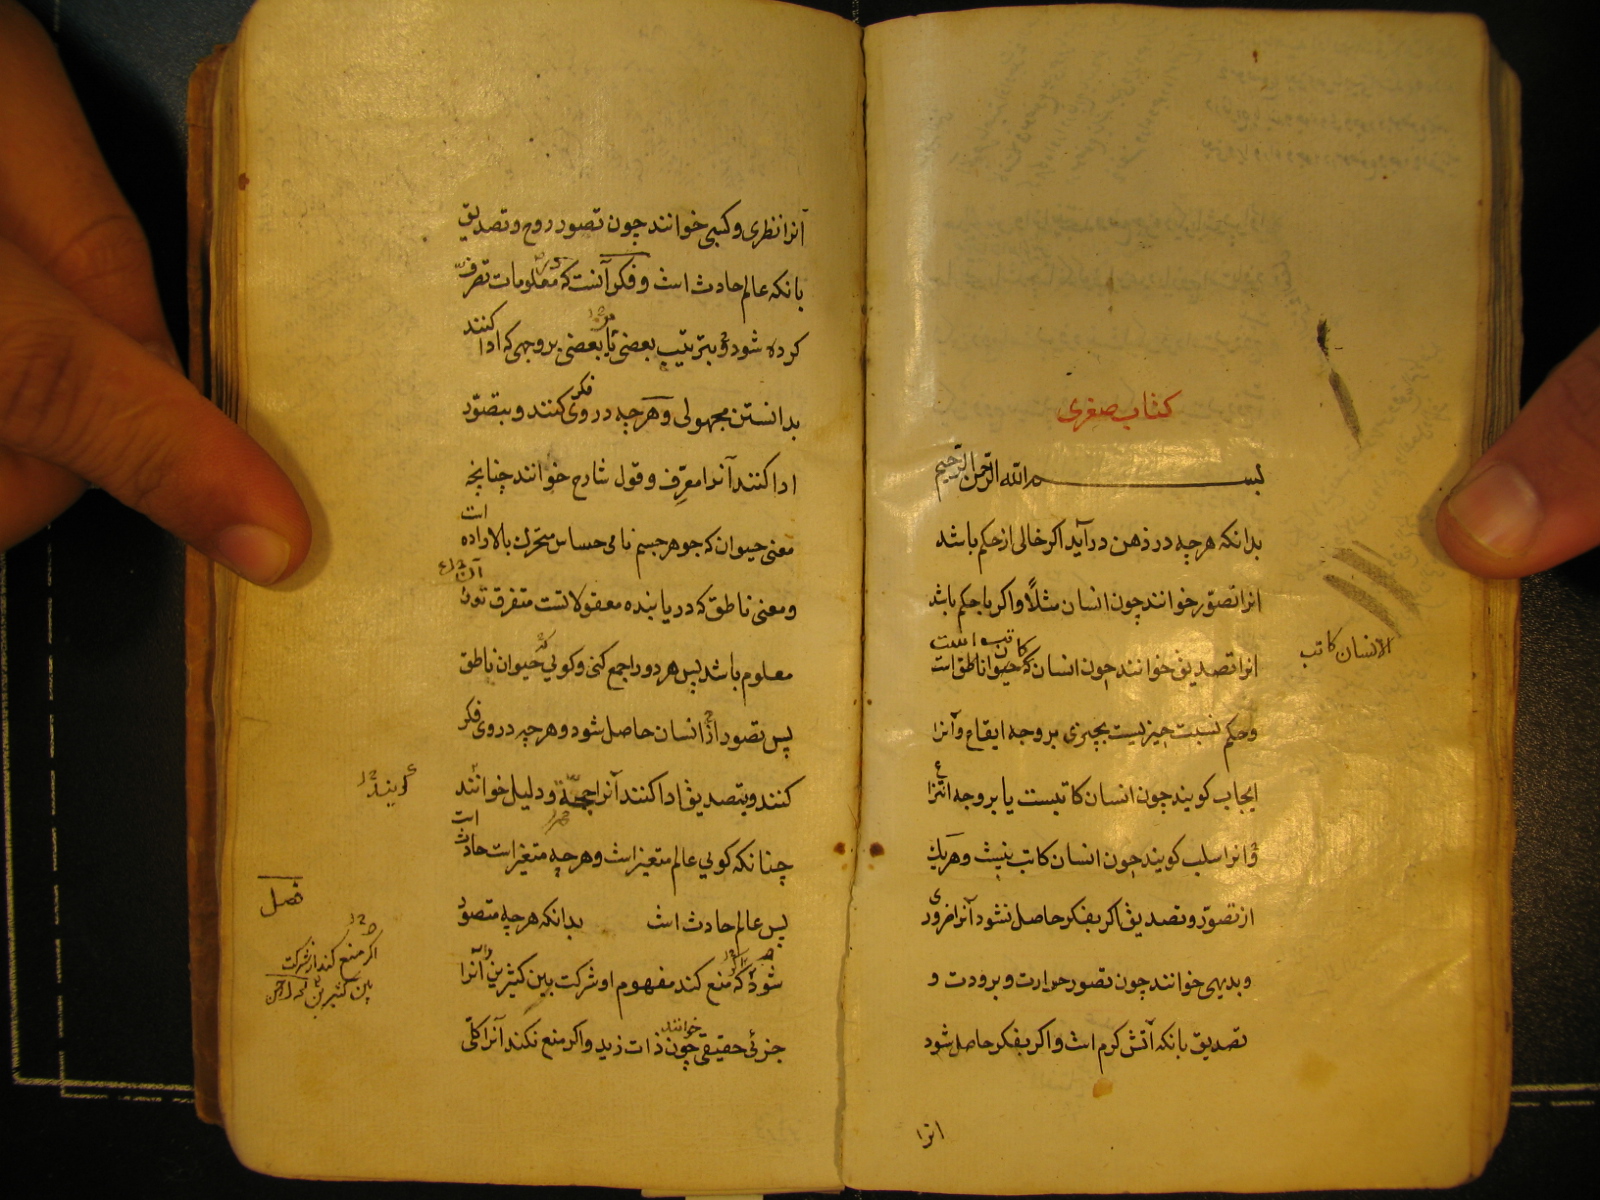 کتاب صغری
بسم الله الرحمن الرحیم
بدانکه هرچه در ذهن درآید اکر خالی از حکم باشد
انرا تصوّر خوانند چون انسان مثلاً واکر باحکم باشد
کاتب است
انرا تصدیق خوانند چون انسان که حیوانا ناطق است
الانسان کاتب
وحکم نسبت چیزیست بچیزی بر وجه ایقاع وآنرا
ایجاب کویند چون انسان کاتبست یا بر وجه انتزاع
وانرا سلب کویند چون انسان کاتب نیست وهریک
از تصوّر وتصدیق اکر بفکر حاصل نشود آنرا ضروری
وبدیهی خوانند چون تصور حرارت وبرودت و
تصدیق بانکه آتش کرم است واکر بفکر حاصل شود
انرا
آنرا نظری وکسبی خوانند چون تصور روح وتصدیق
بانکه عالم حادث است وفکر آنست که معلومات تصرف
کرده شود وبترتیب بعضی با بعضی بر وجهی که ادا کنند
بدانستن مجهولی وهرچه در وی فکر کنند وبتصوّر
ادا کنند آنرا معرّف وقول شارح خوانند چنانچه
معنی حیوان که جوهر جسم نامی حساس متحرک بالاراده است
ومعنی ناطق که دریابنده معقولاتست متفرق تورا
معلوم باشد پس هر دو را جمع کنی وکویی حیوان ناطق
پس تصور از انسان حاصل شود وهرچه در وی فکر
کنند وبتصدیق ادا کنند آنرا حجّة ودلیل خوانند
کویند
چنانکه کویی عالم متغیر است وهرچه متغیر است حادث است
پس عالم حادث است بدانکه هرچه متصوّر
فصل
شود که منع کند مفهوم او شرکت بین کثیرین را آنرا
اکر منع کند از شرکت
بین کثیرین
جزئی حقیقی خوانند چون ذات زید واکر منع نکند آنرا کلّی